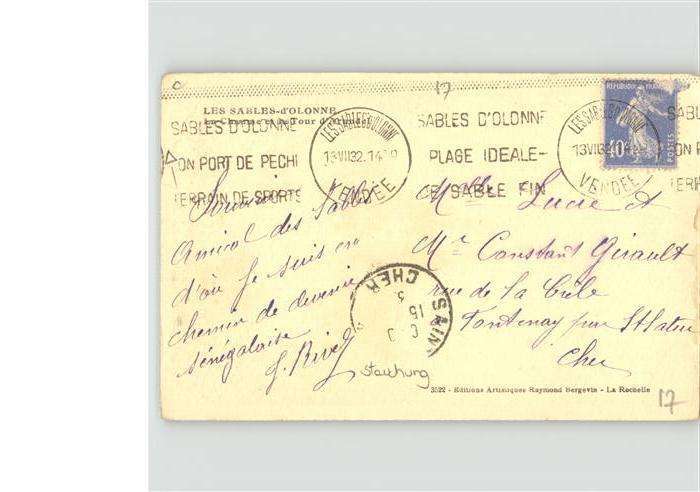 17
LES SABLES-d'OLONNE
La Chaume et la Tour d'Arundel
SABLES D'OLONNE
SON PORT DE PECHE
TERRAIN DE SPORTS
LES SABLES D'OLONNE
13 VII 32. 14
VENDEE
SABLES D'OLONNE
PLAGE IDEALE-
LE SABLE FIN
LES SABLES D'OLONNE
13 VII 32. 14
VENDEE
REPUBLIQUE FRANÇAISE
40
POSTES
SABLES
Souvenir
Amical des Sables
d'où je suis en
chemin de devenir
Sénégalaise
Melle Lucie et
Mr Constant Girault
rue de la
Fontenay par St Satur
Cher
SAIN
15
CHER
3522 - Editions Artistiques Raymond Bergevin - La Rochelle
17